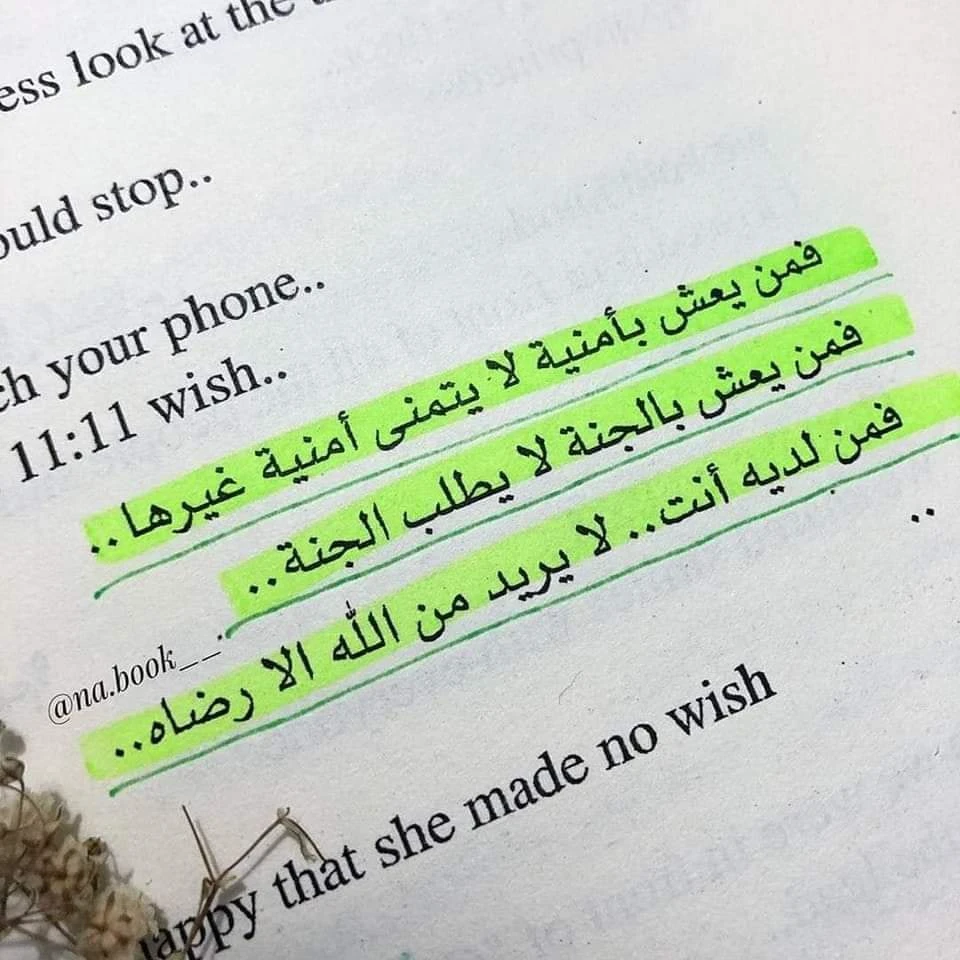 look at the
stop..
your phone..
11:11 wish..
فمن يعش بأمنية لا يتمنى أمنية غيرها..
فمن يعش بالجنة لا يطلب الجنة..
فمن لديه أنت.. لا يريد من الله الا رضاه..
..
@na.book__.
that she made no wish